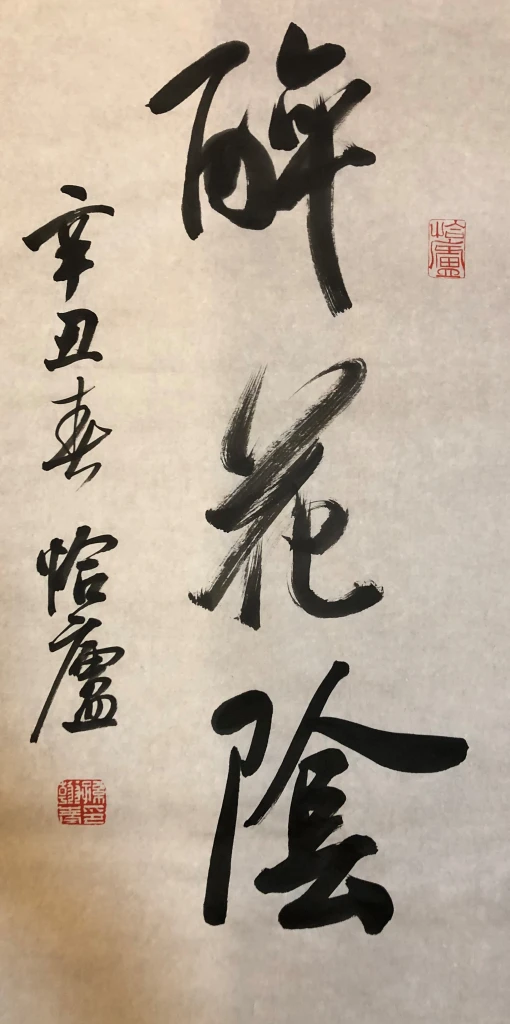 醉花陰
辛丑春 恰廬
恰廬